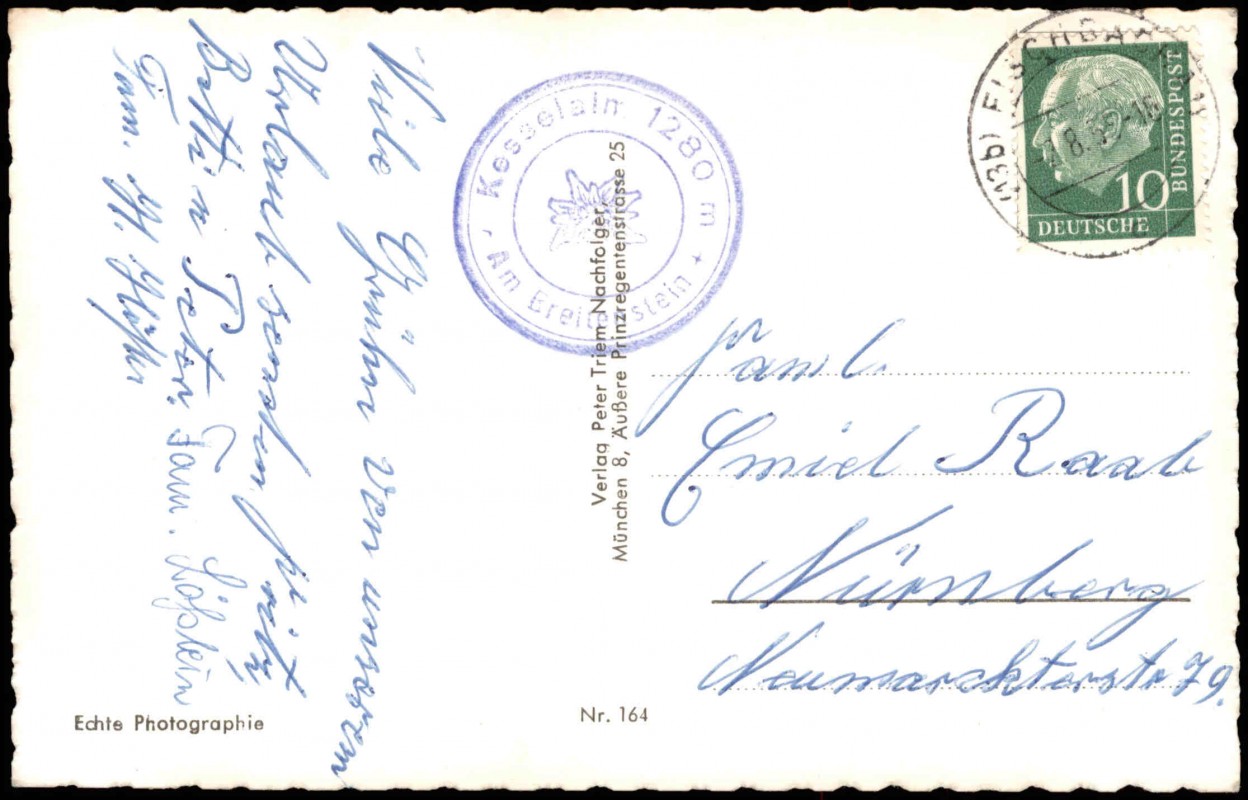 Viele Grüße von unserem
Urlaub senden
Betti u. Peter.
Fam. Lößlein
Fam. H.
Kesselalm 1280 m
Am Breitenstein
Verlag Peter Triem Nachfolger,
München 8, Äußere Prinzregentenstrasse 25
(13b) FISCHBACHAU
8.59-16
10
DEUTSCHE
BUNDESPOST
Famil.
Emiel Raab
Nürnberg
Neumarckterstr 79.
Echte Photographie
Nr. 164